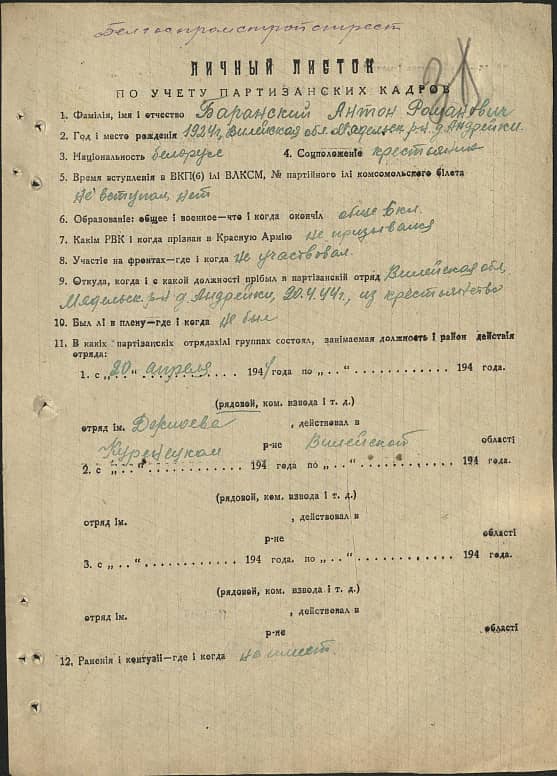 Белгоспромстройтрест
ЛИЧНЫЙ ЛИСТОК
ПО УЧЕТУ ПАРТИЗАНСКИХ КАДРОВ
1. Фамілія, імя і отчество Баранский Антон Романович
2. Год і место рождения 1924 г, Вилейская обл. Мядельск. р-н. д. Андрейки.
3. Національность белорус 4. Соцположение крестьянин
5. Время вступления в ВКП(б) ілі ВЛКСМ, № партійного ілі комсомольского білета
Не вступал, нет
6. Образованіе: общее і военное—что і когда окончіл обще 6 кл.
7. Какім РВК і когда прізван в Красную Армію не призывался
8. Участіе на фронтах—где і когда Не участвовал.
9. Откуда, когда і с какой должності прібыл в партізанскій отряд Вилейская обл,
Мядельск. р-н д. Андрейки, 20.4.44 г., из крестьянства
10. Был лі в плену—где і когда Не был
11. В какіх партізанскіх отрядах ілі группах состоял, занімаемая должность і район действія
отряда:
1. с „20“ апреля 1944 года по „..“ 194 года.
(рядовой, ком. взвода і т. д.)
отряд ім. , действовал в
р-не Вилейской області
2. с „..“ 194 года по „..“ 194 года.
(рядовой, ком. взвода і т. д.)
отряд ім. , действовал в
р-не області
3. с „..“ 194 года. по „..“ 194 года.
(рядовой, ком. взвода і т. д.)
отряд ім. , действовал в
р-не області
12. Ранения і контузіі—где і когда не имеет.